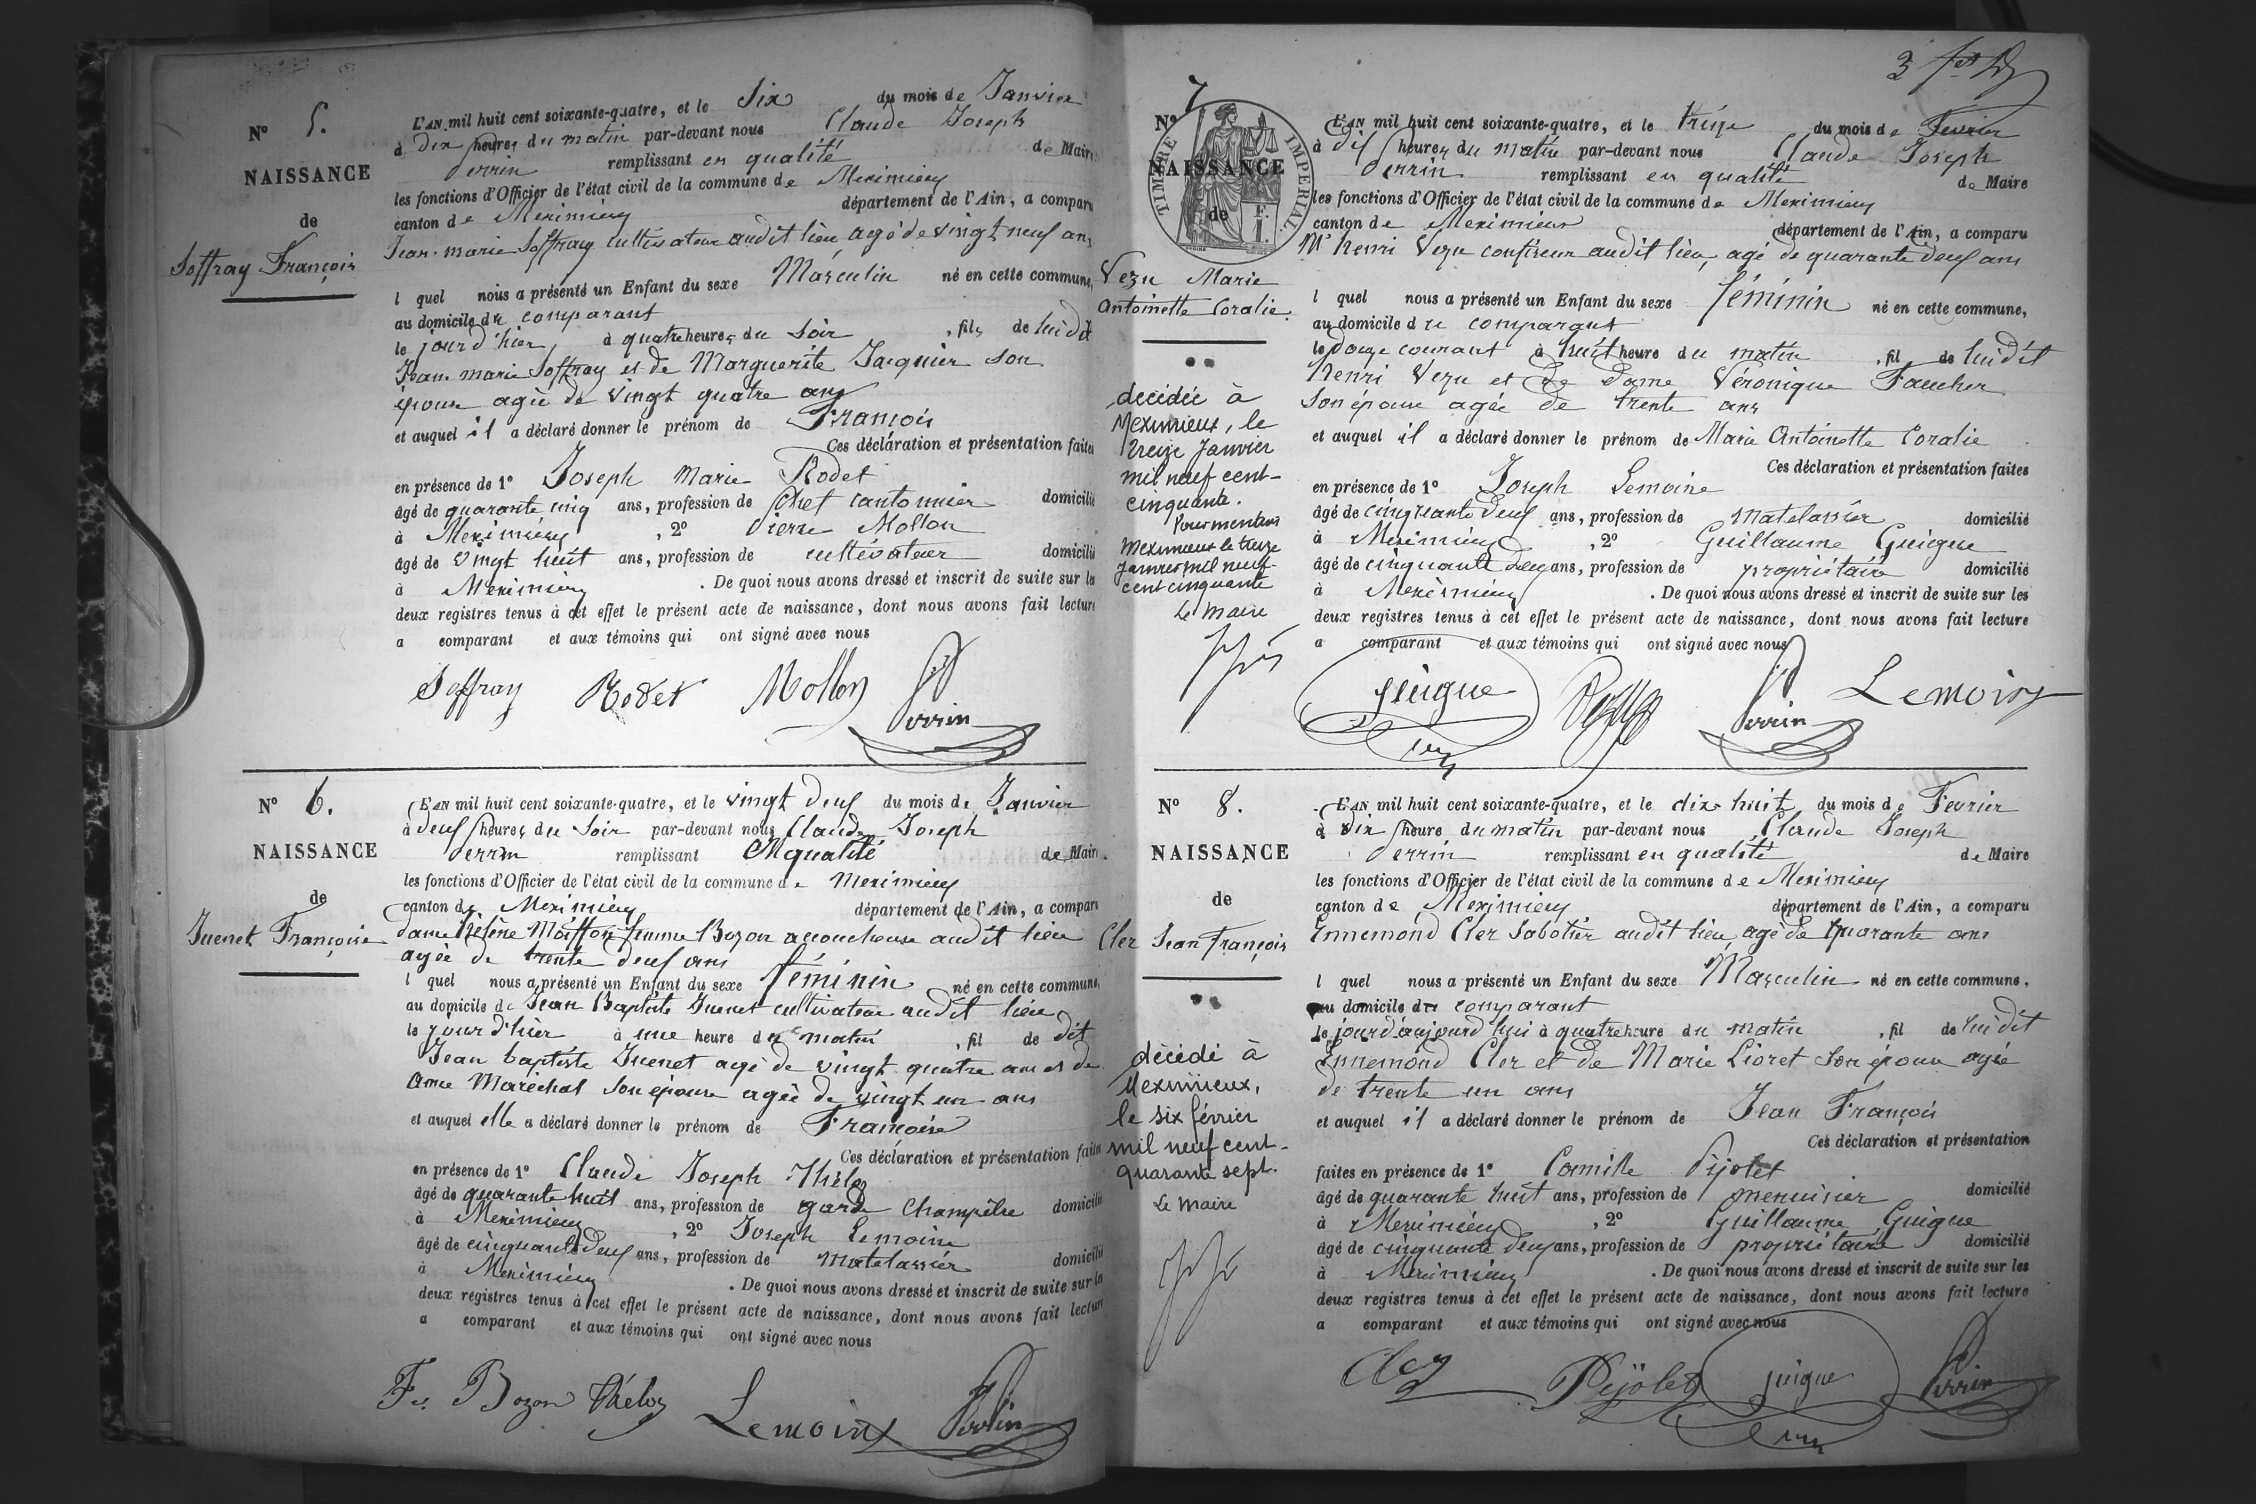 N° 5.
NAISSANCE
de
Soffray François
L'AN mil huit cent soixante-quatre, et le Six du mois de Janvier
à dix heures du matin par-devant nous Claude Joseph
Perrin remplissant en qualité de Maire
les fonctions d'Officier de l'état civil de la commune de Meximieux
canton de Meximieux département de l'Ain, a comparu
Jean-marie Soffray cultivateur audit lieu agé de vingt neuf ans
l quel nous a présenté un Enfant du sexe Masculin né en cette commune,
au domicile du comparant
le jour d'hier, à quatre heures du Soir, fils de lui dit
Jean-marie Soffray et de Marguerite Jacquier son
épouse agée de vingt quatre ans
et auquel il a déclaré donner le prénom de François
Ces déclaration et présentation faites
en présence de 1° Joseph Marie Rodet
âgé de quarante cinq ans, profession de Chef cantonnier domicilié
à Meximieux, 2° Pierre Mollon
âgé de vingt huit ans, profession de cultivateur domicilié
à Meximieux. De quoi nous avons dressé et inscrit de suite sur les
deux registres tenus à cet effet le présent acte de naissance, dont nous avons fait lecture
a comparant et aux témoins qui ont signé avec nous
Soffray Rodet Mollon Perrin
N° 6.
NAISSANCE
de
Juenet Françoise
L'AN mil huit cent soixante-quatre, et le vingt deux du mois de Janvier
à deux heures du Soir par-devant nous Claude Joseph
Perrin remplissant en qualité de Maire
les fonctions d'Officier de l'état civil de la commune de Meximieux
canton de Meximieux département de l'Ain, a comparu
dame Hélène Moiffon femme Bozon acoucheuse audit lieu
agée de trente deux ans
l quel nous a présenté un Enfant du sexe féminin né en cette commune,
au domicile de Jean Baptiste Juenet cultivateur audit lieu,
le jour d'hier à une heure du matin, fil de dit
Jean baptiste Juenet agé de vingt quatre ans et de
Anne Maréchal Son epouse agée de vingt un ans
et auquel elle a déclaré donner le prénom de Françoise
Ces déclaration et présentation faites
en présence de 1° Claude Joseph Théloz
âgé de quarante huit ans, profession de garde Champêtre domicilié
à Meximieux, 2° Joseph Lemoine
âgé de cinquante deux ans, profession de Matelassier domicilié
à Meximieux. De quoi nous avons dressé et inscrit de suite sur les
deux registres tenus à cet effet le présent acte de naissance, dont nous avons fait lecture
a comparant et aux témoins qui ont signé avec nous
Fe Bozon Théloz Lemoine Perrin
3
N° 7
TIMBRE IMPERIAL
NAISSANCE
de
Vezu Marie
Antoinette Coralie
décédée à
Meximieux, le
treize Janvier
mil neuf cent-
cinquante.
Pour mention
Meximieux le treize
janvier mil neuf-
cent cinquante
Le Maire
L'AN mil huit cent soixante-quatre, et le treize du mois de Fevrier
à dix heures du matin par-devant nous Claude Joseph
Perrin remplissant en qualité de Maire
les fonctions d'Officier de l'état civil de la commune de Meximieux
canton de Meximieux département de l'Ain, a comparu
Mr Henri Vezu confiseur audit lieu, agé de quarante deux ans
l quel nous a présenté un Enfant du sexe féminin né en cette commune,
au domicile du comparant
le douze courant à huit heure du matin, fil de lui dit
Henri Vezu et de Dame Véronique Faucher
Son épouse agée de trente ans
et auquel il a déclaré donner le prénom de Marie Antoinette Coralie
Ces déclaration et présentation faites
en présence de 1° Joseph Lemoine
âgé de cinquante deux ans, profession de Matelassier domicilié
à Meximieux, 2° Guillaume Guigue
âgé de cinquante deux ans, profession de propriétaire domicilié
à Meximieux. De quoi nous avons dressé et inscrit de suite sur les
deux registres tenus à cet effet le présent acte de naissance, dont nous avons fait lecture
a comparant et aux témoins qui ont signé avec nous
guigue Perrin Lemoine
N° 8.
NAISSANCE
de
Cler Jean François
décédé à
Meximieux,
le six février
mil neuf cent-
quarante sept.
Le Maire
L'AN mil huit cent soixante-quatre, et le dix huit du mois de Fevrier
à dix heure du matin par-devant nous Claude Joseph
Perrin remplissant en qualité de Maire
les fonctions d'Officier de l'état civil de la commune de Meximieux
canton de Meximieux département de l'Ain, a comparu
Ennemond Cler Sabotier audit lieu, agé de quarante ans
l quel nous a présenté un Enfant du sexe Masculin né en cette commune,
au domicile du comparant
le jour d'aujourd'hui à quatre heure du matin, fil de lui dit
Ennemond Cler et de Marie Lioret Son épouse agée
de trente un ans
et auquel il a déclaré donner le prénom de Jean François
Ces déclaration et présentation
faites en présence de 1° Camille Pijolet
âgé de quarante huit ans, profession de menuisier domicilié
à Meximieux, 2° Guillaume Guigue
âgé de cinquante deux ans, profession de propriétaire domicilié
à Meximieux. De quoi nous avons dressé et inscrit de suite sur les
deux registres tenus à cet effet le présent acte de naissance, dont nous avons fait lecture
a comparant et aux témoins qui ont signé avec nous
Cler Pijolet guigue Perrin